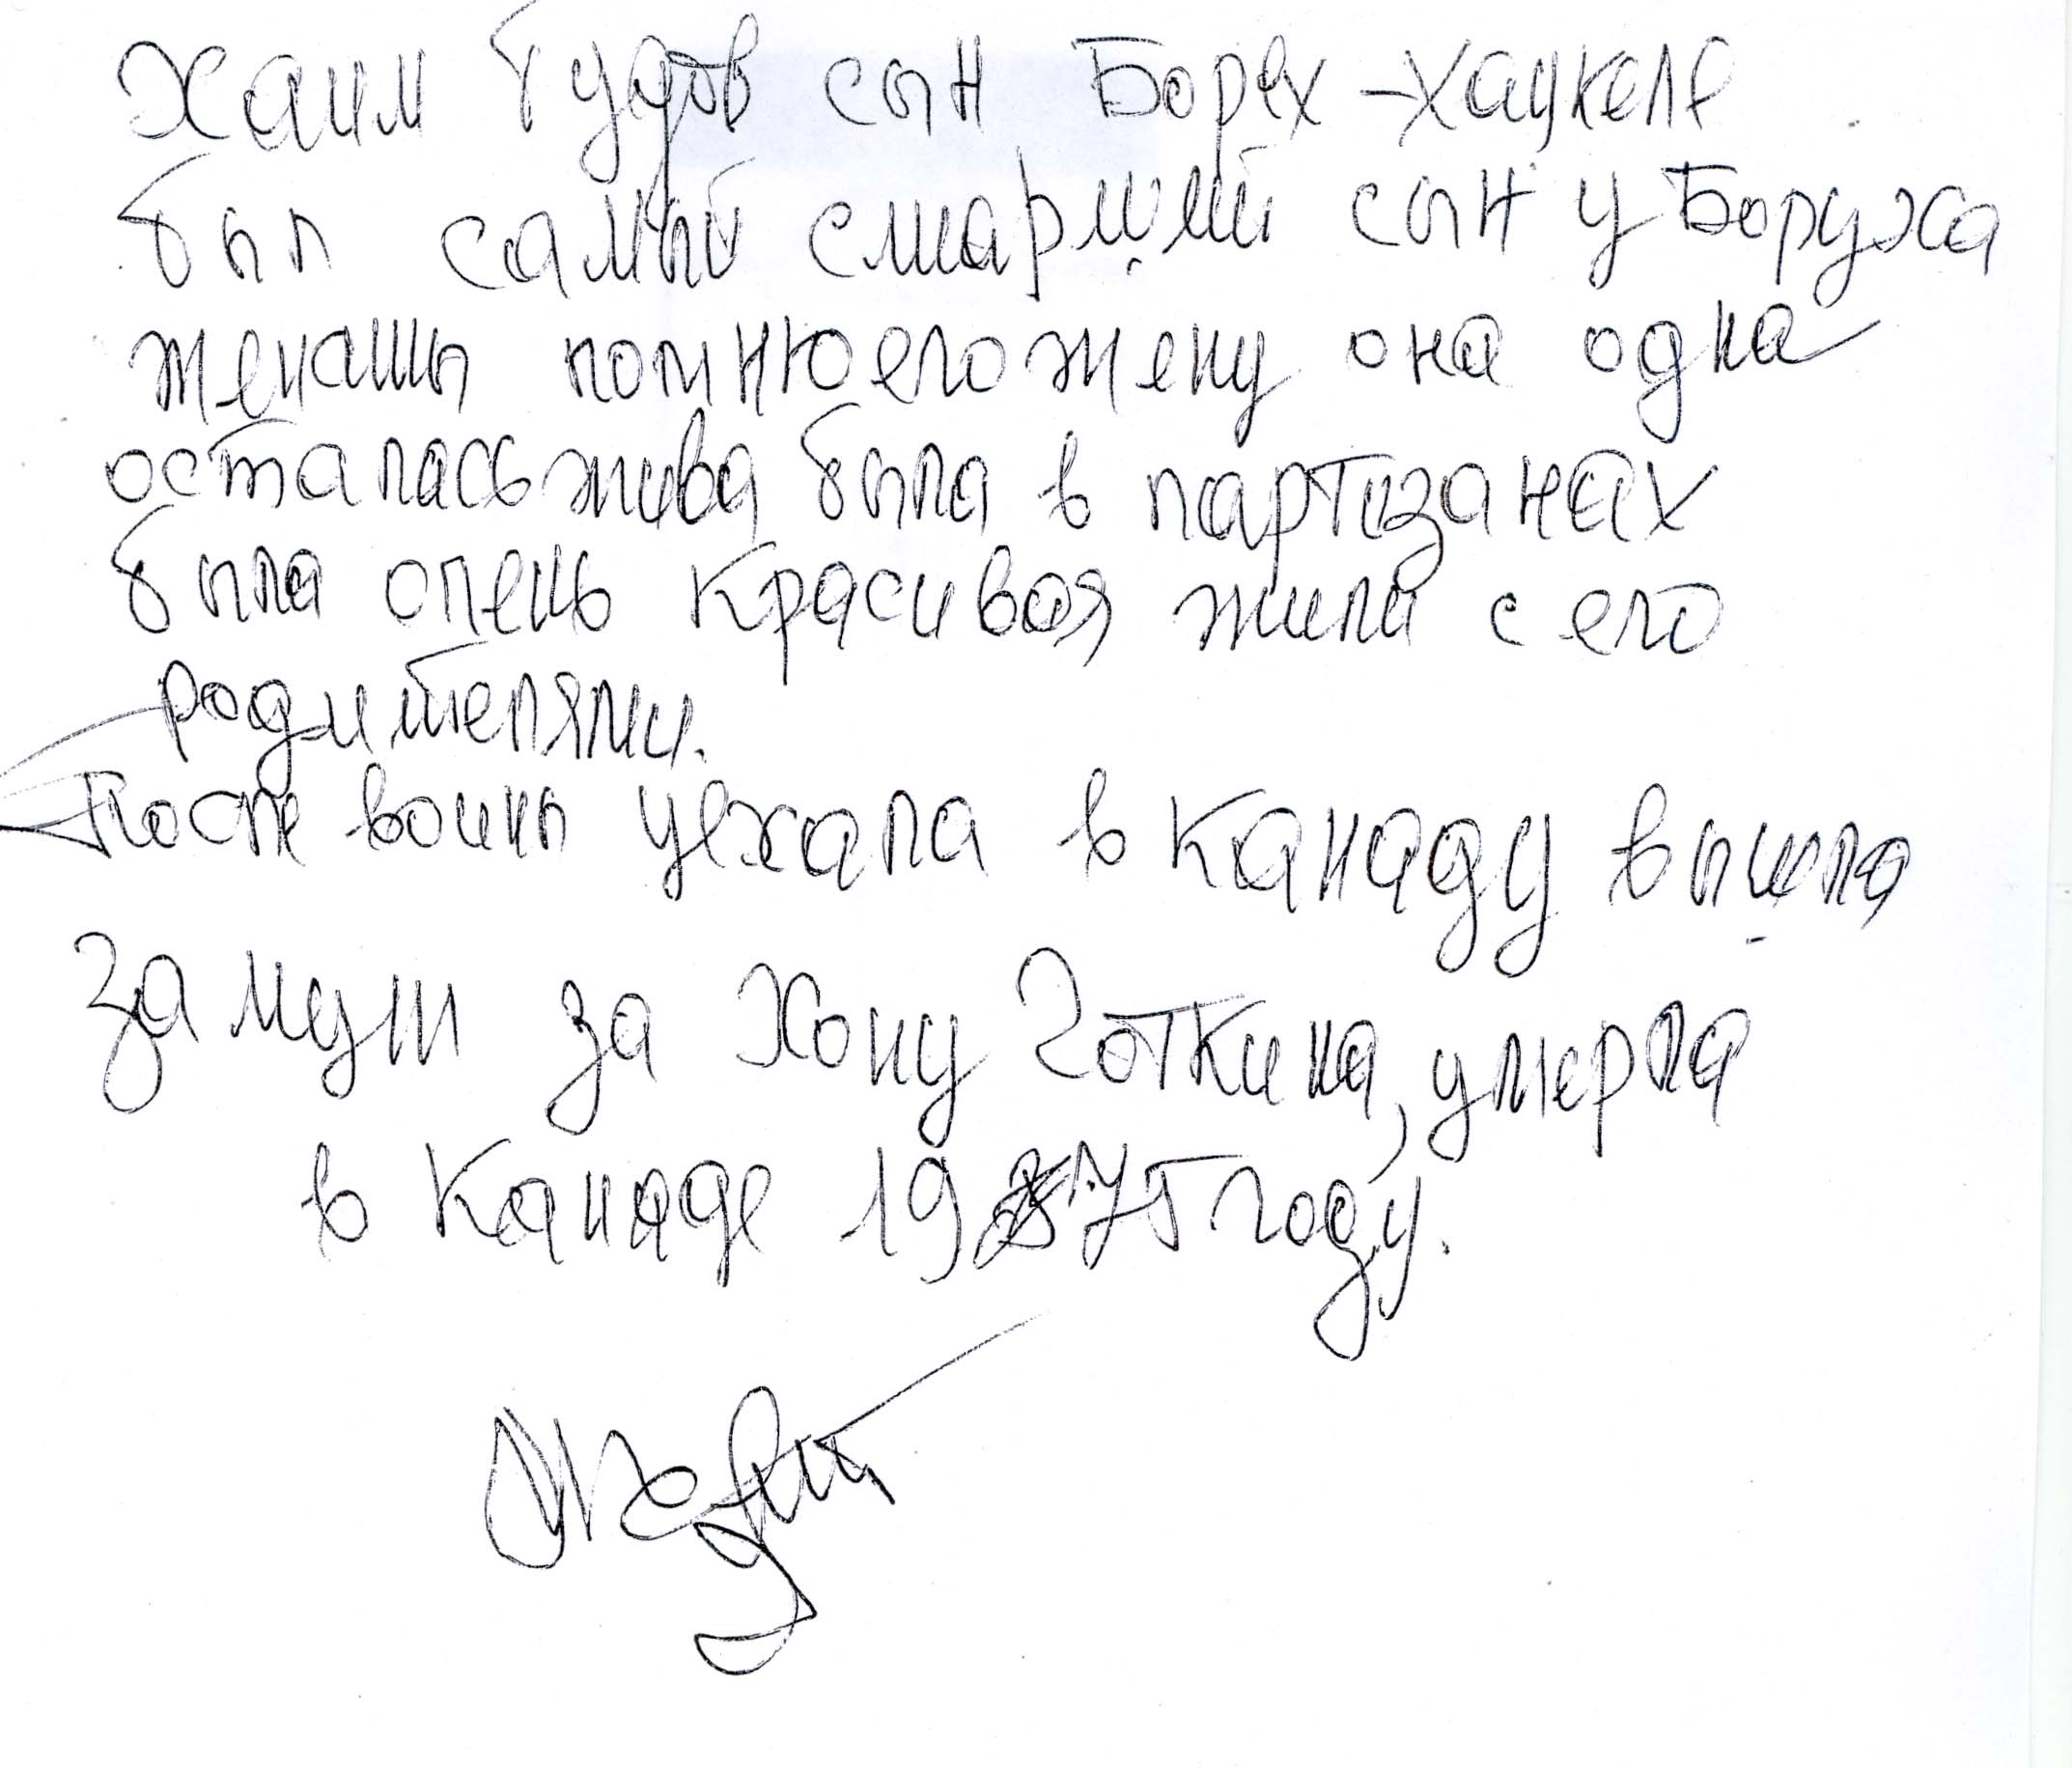 Хаим Гудов сын Борех-Хаукеле
был самый старший сын у Боруха
женаты помню его жену она одна
осталась жива была в партизанах
была очень красивая жила с его
родителями.
После воины уехала в Канаду вышла
за муж за Хону Готкина, умерла
в Канаде 1975 году.